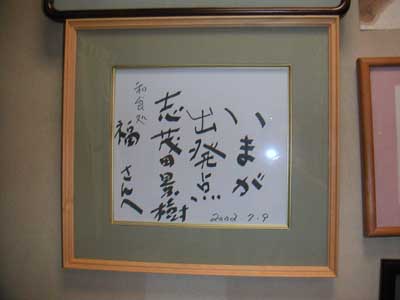 いまが
出発点
志茂田景樹
和食処
福さんへ
2002・7・9